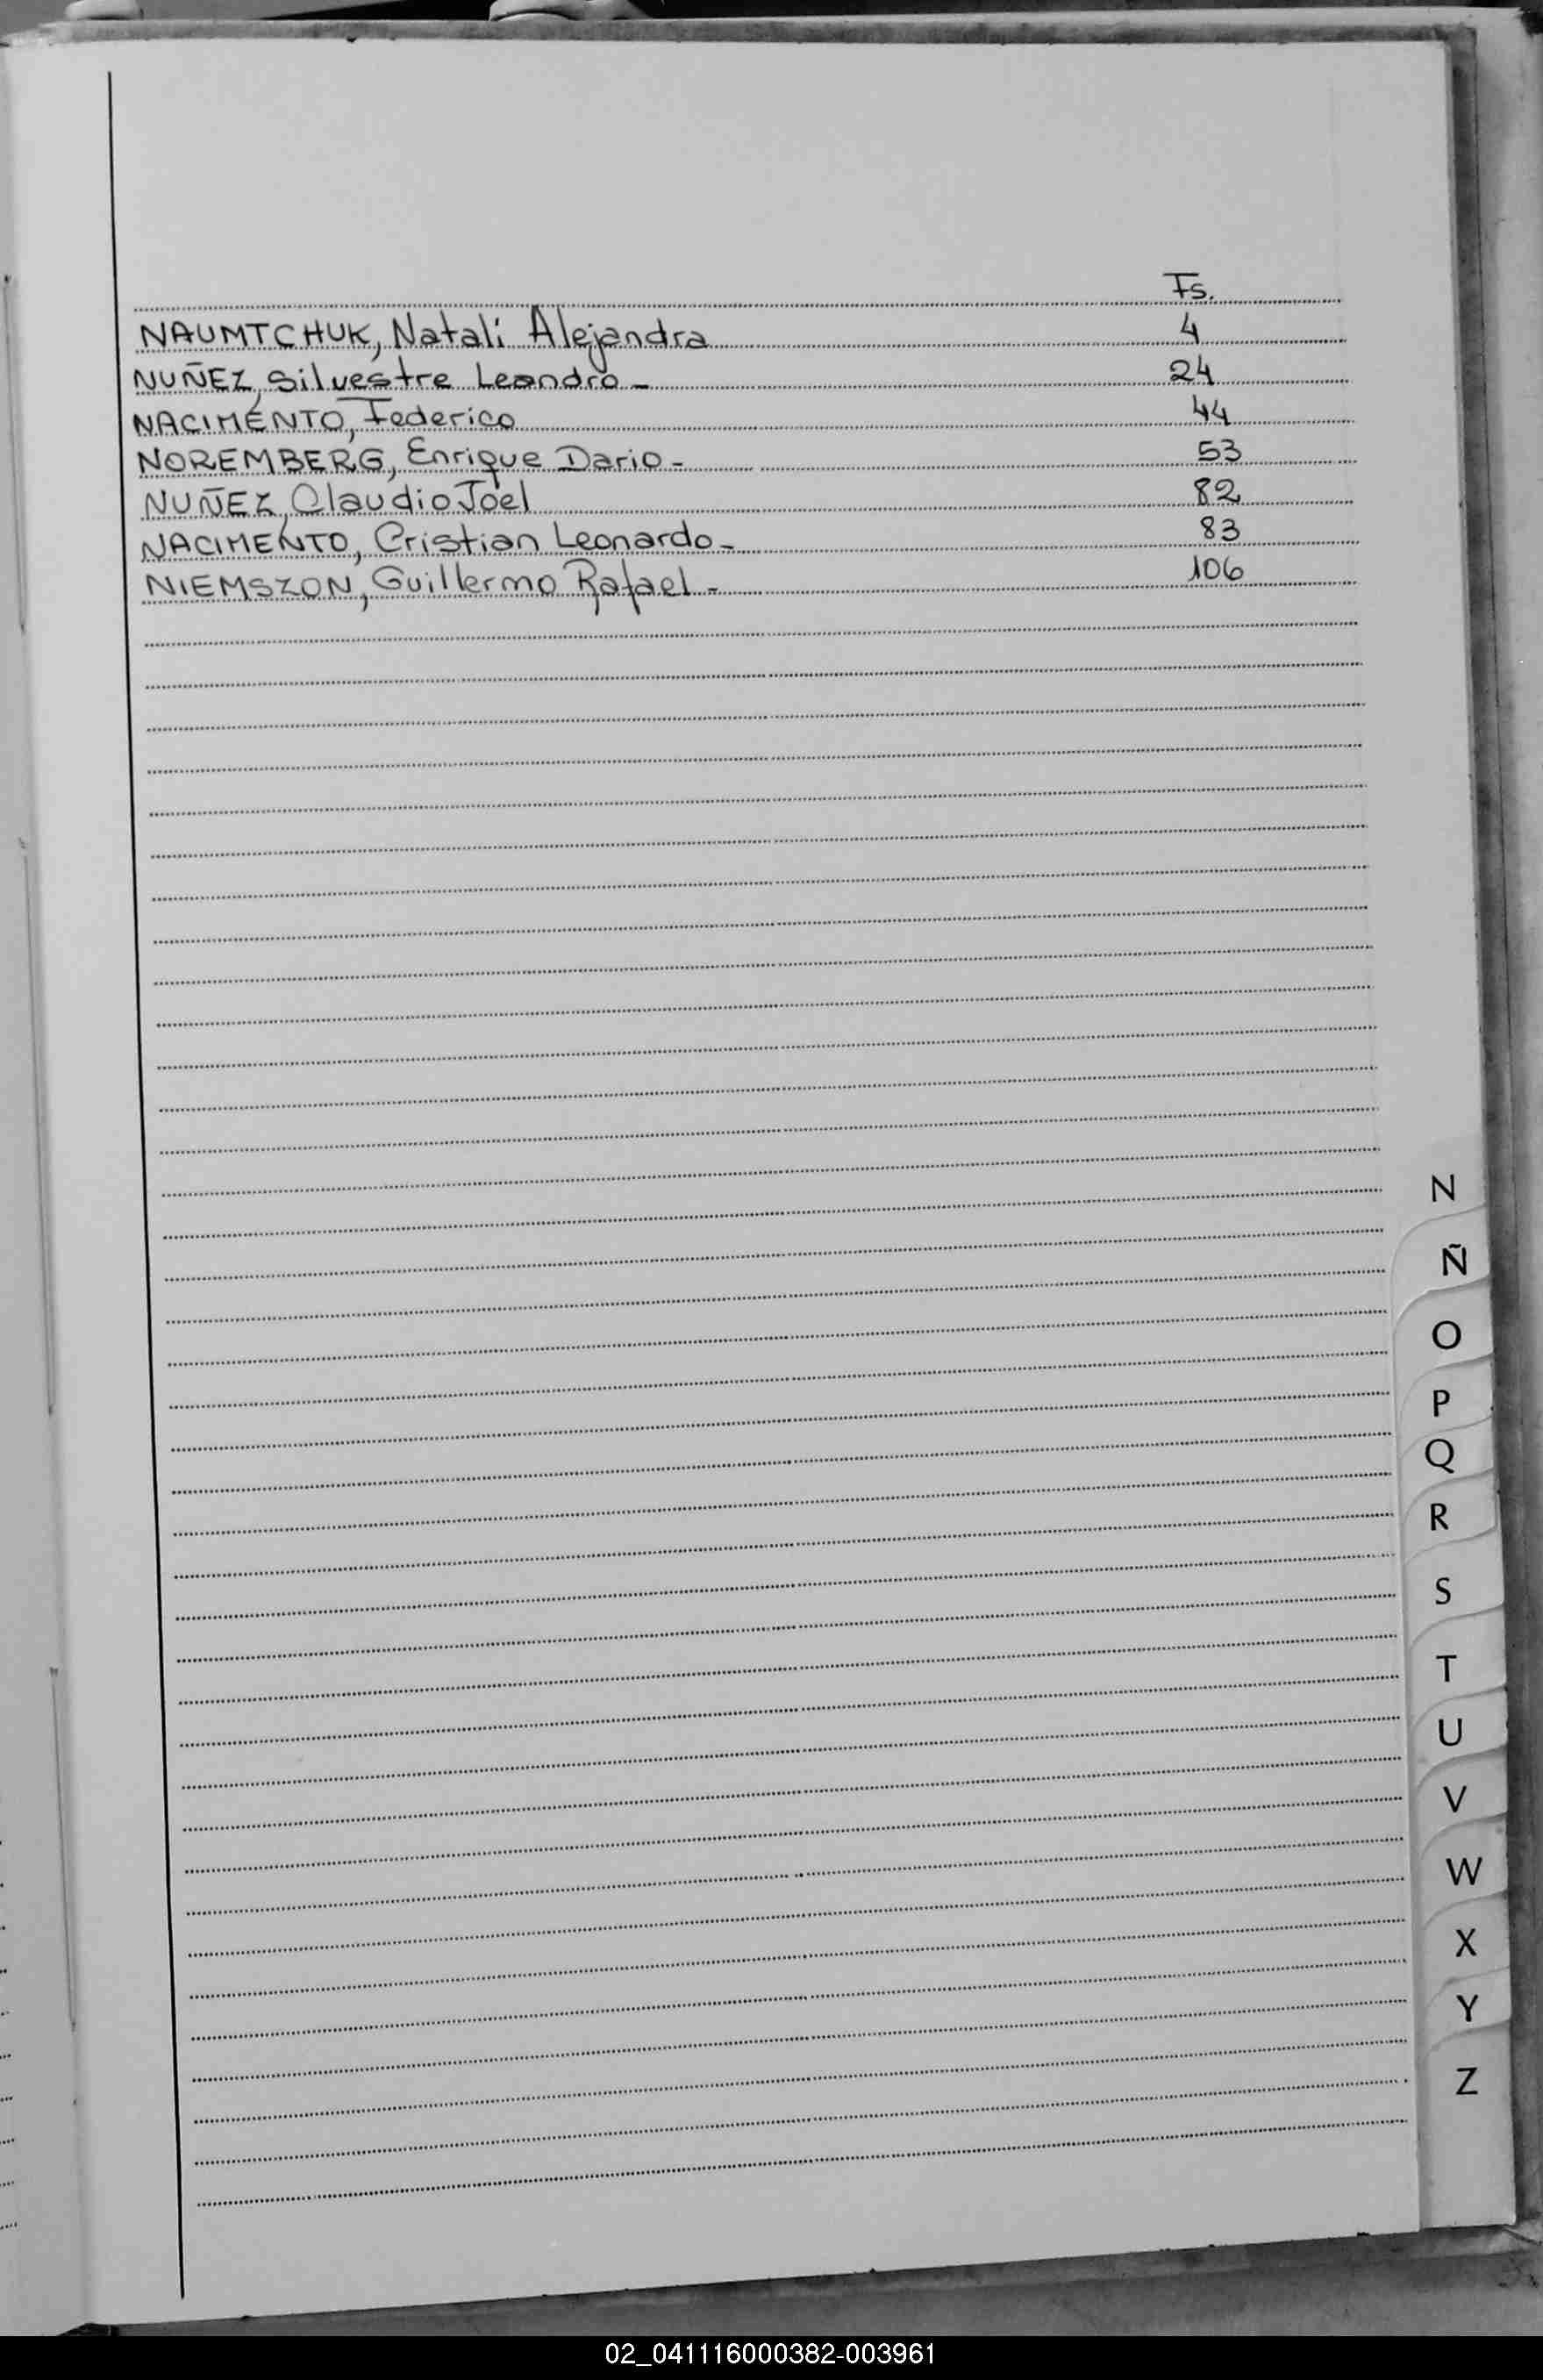 Fs.
NAUMTCHUK, Natalí Alejandra 4
NUÑEZ, Silvestre Leandro - 24
NACIMENTO, Federico 44
NOREMBERG, Enrique Dario - 53
NUÑEZ, Claudio Joel 82
NACIMENTO, Cristian Leonardo - 83
NIEMSZON, Guillermo Rafael - 106
N
Ñ
O
P
Q
R
S
T
U
V
W
X
Y
Z
02_041116000382-003961